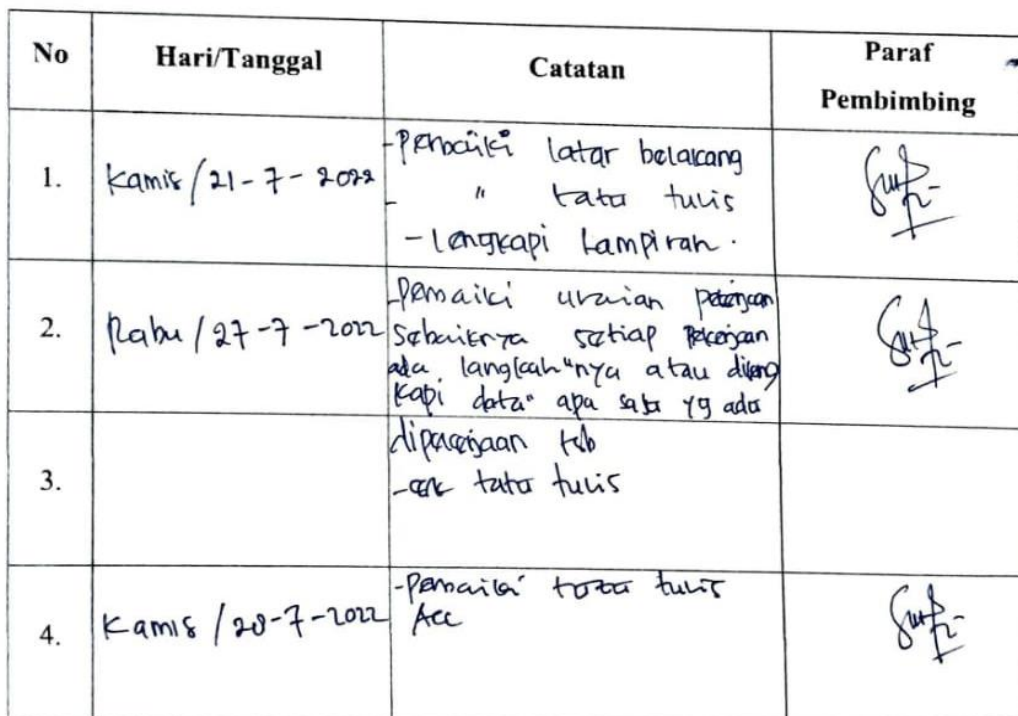 No Hari/Tanggal Catatan Paraf
Pembimbing
1. Kamis / 21-7-2022 -Perbaiki latar belakang
- " tata tulis
- lengkapi Lampiran.
2. Rabu / 27-7-2022 -Perbaiki uraian pekerjaan
Sebaiknya setiap Pekerjaan
ada langkah"nya atau dileng
kapi data" apa saja yg ada
3. dipekerjaan tsb
-cek tata tulis
4. Kamis / 28-7-2022 -Perbaiki tata tulis
Acc